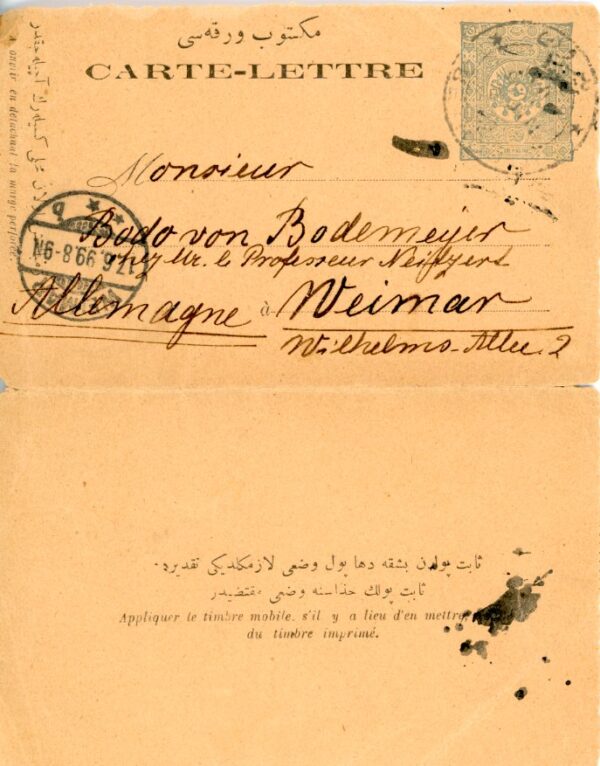 مكتوب ورقه‌سی
CARTE-LETTRE
à ouvrir en détachant la marge perforée.
Monsieur
Bodo von Bodemeyer
chez Mr. le Professeur
Allemagne à Weimar
Wilhelms-Allee. 2
17.6.99.8-9N.
b
ثابت پولدن بشقه دها پول وضعی لازمكلديكی تقديرده
ثابت پولك حذاسنه وضعی مقتضيدر
Appliquer le timbre mobile, s'il y a lieu d'en mettre,
du timbre imprimé.